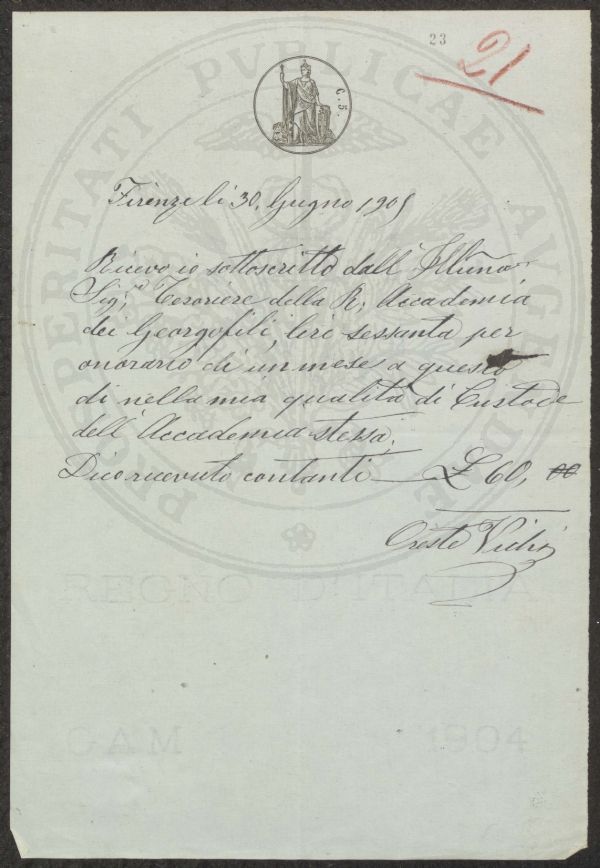 23
21
C. 5.
PROSPERITATI PVBLICAE AVGENDAE
Firenze li 30, Gugno 1905
Ricevo io sottoscritto dall' Illmo
Sig;r Tesoriere della R; Accademia
dei Georgofili, lire sessanta per
onorario di un mese a questo
di nella mia qualità di Custode
dell' Accademia stessa;
Dico ricevuto contanti — £ 60, 00
Oreste
REGNO D'ITALIA
CAM 1904